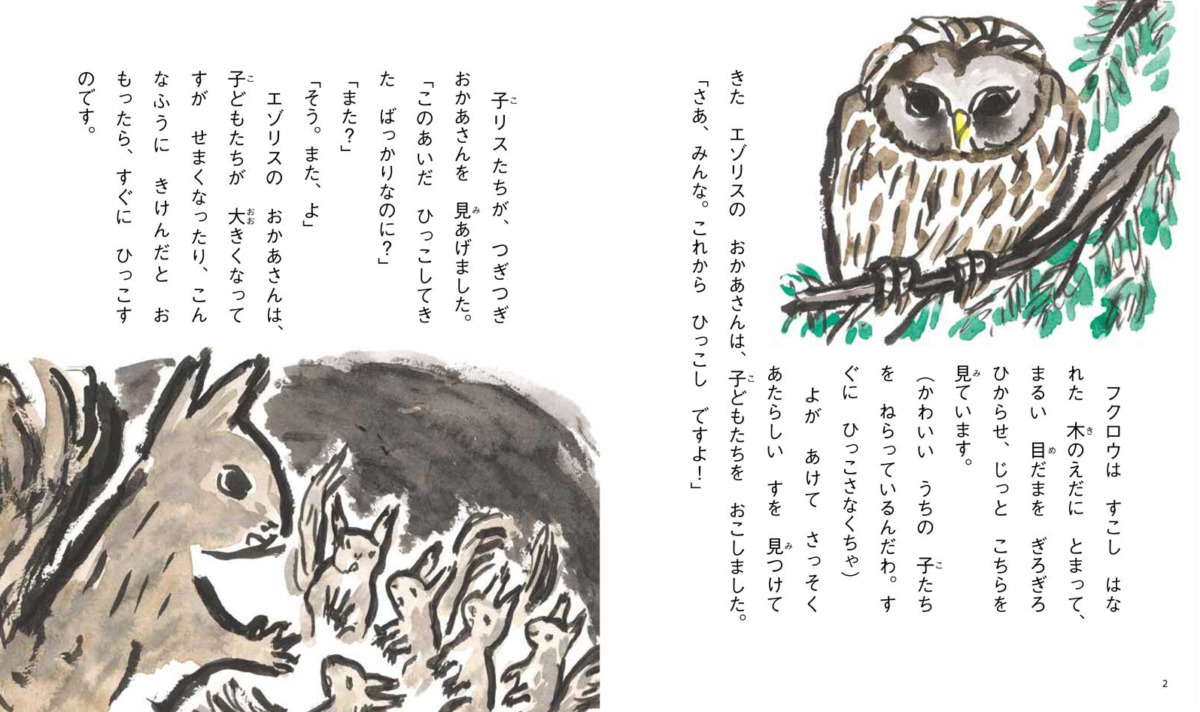 フクロウは すこし はな
れた 木のえだに とまって、
まるい 目だまを ぎろぎろ
ひからせ、じっと こちらを
見ています。
(かわいい うちの 子たち
を ねらっているんだわ。す
ぐに ひっこさなくちゃ)
よが あけて さっそく
あたらしい すを 見つけて
きた エゾリスの おかあさんは、子どもたちを おこしました。
「さあ、みんな。これから ひっこし ですよ!」
子リスたちが、つぎつぎ
おかあさんを 見あげました。
「このあいだ ひっこしてき
た ばっかりなのに?」
「また?」
「そう。また、よ」
エゾリスの おかあさんは、
子どもたちが 大きくなって
すが せまくなったり、こん
なふうに きけんだと お
もったら、すぐに ひっこす
のです。
2